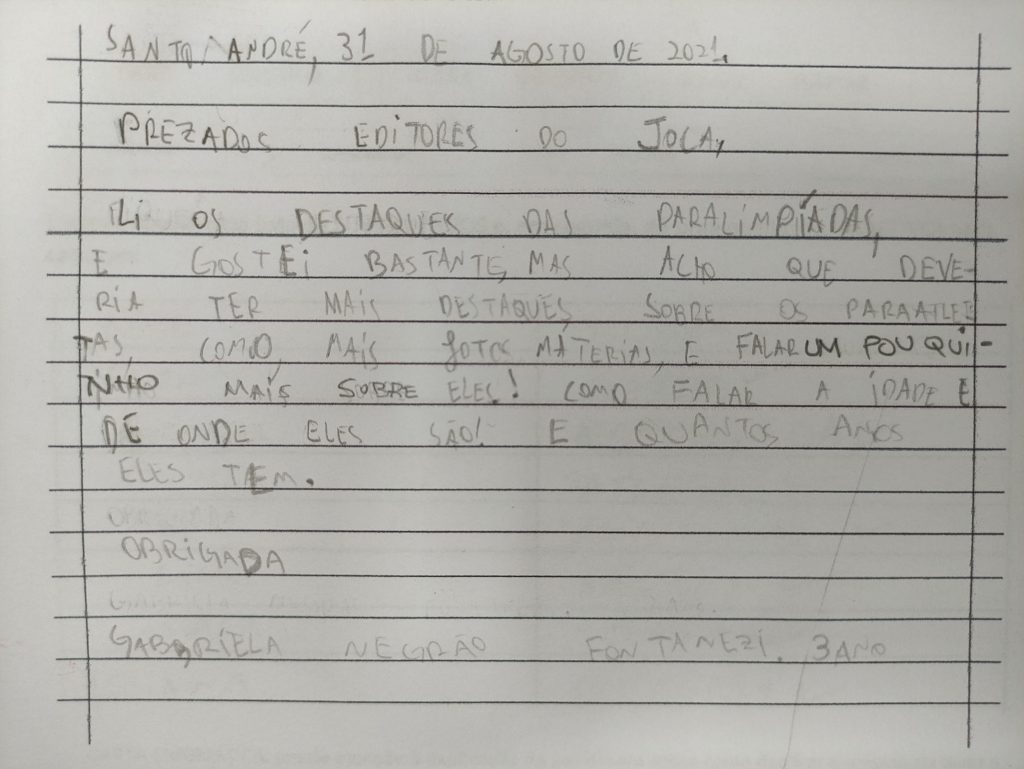 SANTO ANDRÉ, 31 DE AGOSTO DE 2021.
PREZADOS EDITORES DO JOCA,
LI OS DESTAQUES DAS PARALIMPÍADAS,
E GOSTEI BASTANTE, MAS ACHO QUE DEVE-
RIA TER MAIS DESTAQUES SOBRE OS PARAATLE
TAS, COMO, MAIS FOTOS, MATERIAS, E FALAR UM POUQUI-
NHO MAIS SOBRE ELES! COMO FALAR A IDADE E
DE ONDE ELES SÃO! E QUANTOS ANOS
ELES TEM.
OBRIGADA
GABRIELA NEGRÃO FONTANEZI. 3 ANO